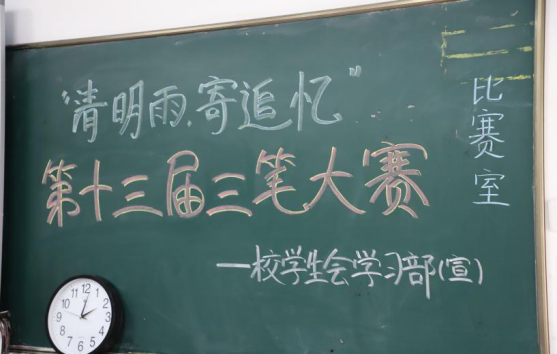 “清明雨、寄追忆”
第十三届三笔大赛
一校学生会学习部(宣)
比赛室
12
1
2
3
4
5
6
7
8
9
10
11